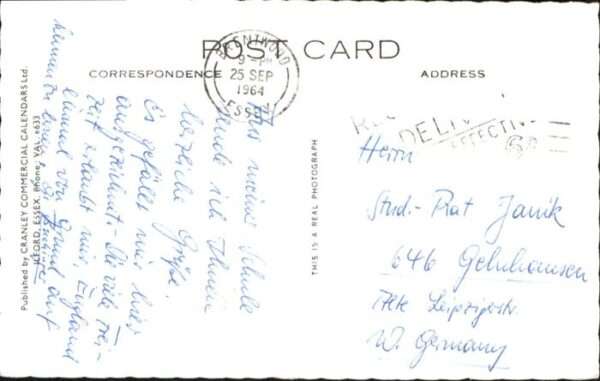 POST CARD
CORRESPONDENCE
ADDRESS
BRENTWOOD
9 - PM
25 SEP
1964
ESSEX
DELIV
EFFECTIV
Published by CRANLEY COMMERCIAL CALENDARS Ltd.
ILFORD, ESSEX. Phone, VAL. 6633
THIS IS A REAL PHOTOGRAPH
Aus meiner Schule
sende ich Ihnen
herzliche Grüße.
Es gefällt mir hier
ausgezeichnet. Die viele Frei-
zeit erlaubt mir, England
einmal von Grund auf
kennen zu lernen.
Herrn
Stud.-Rat Janik
646 Gelnhausen
Alte Leipzigerstr.
W. Germany